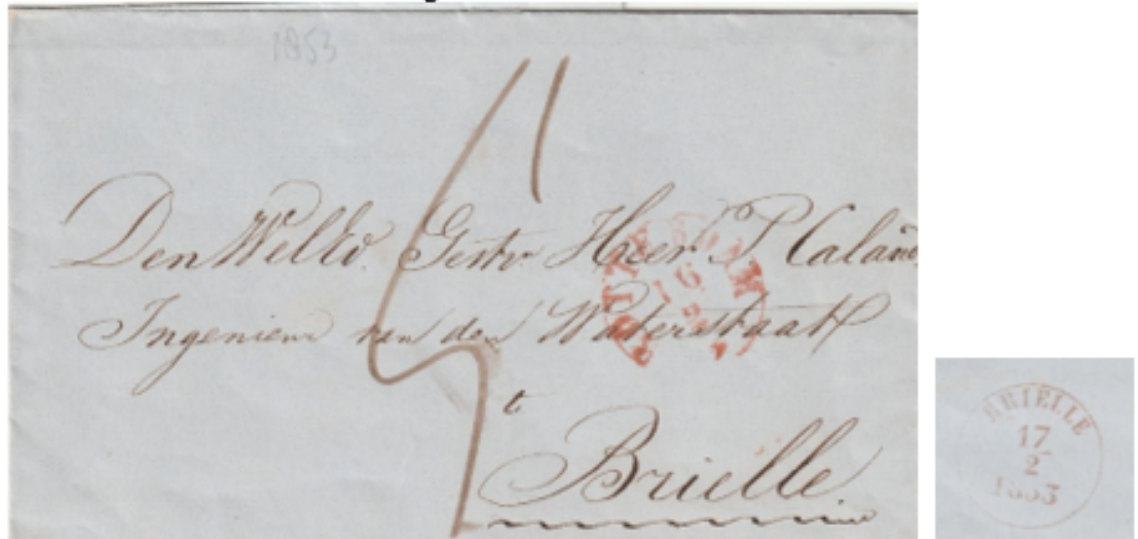 1853
Den WelEd. Gestr Heer P Caland
Ingenieur van den Waterstaat
t
Brielle.
ROTTERDAM
16
2
BRIELLE
17
2
1853